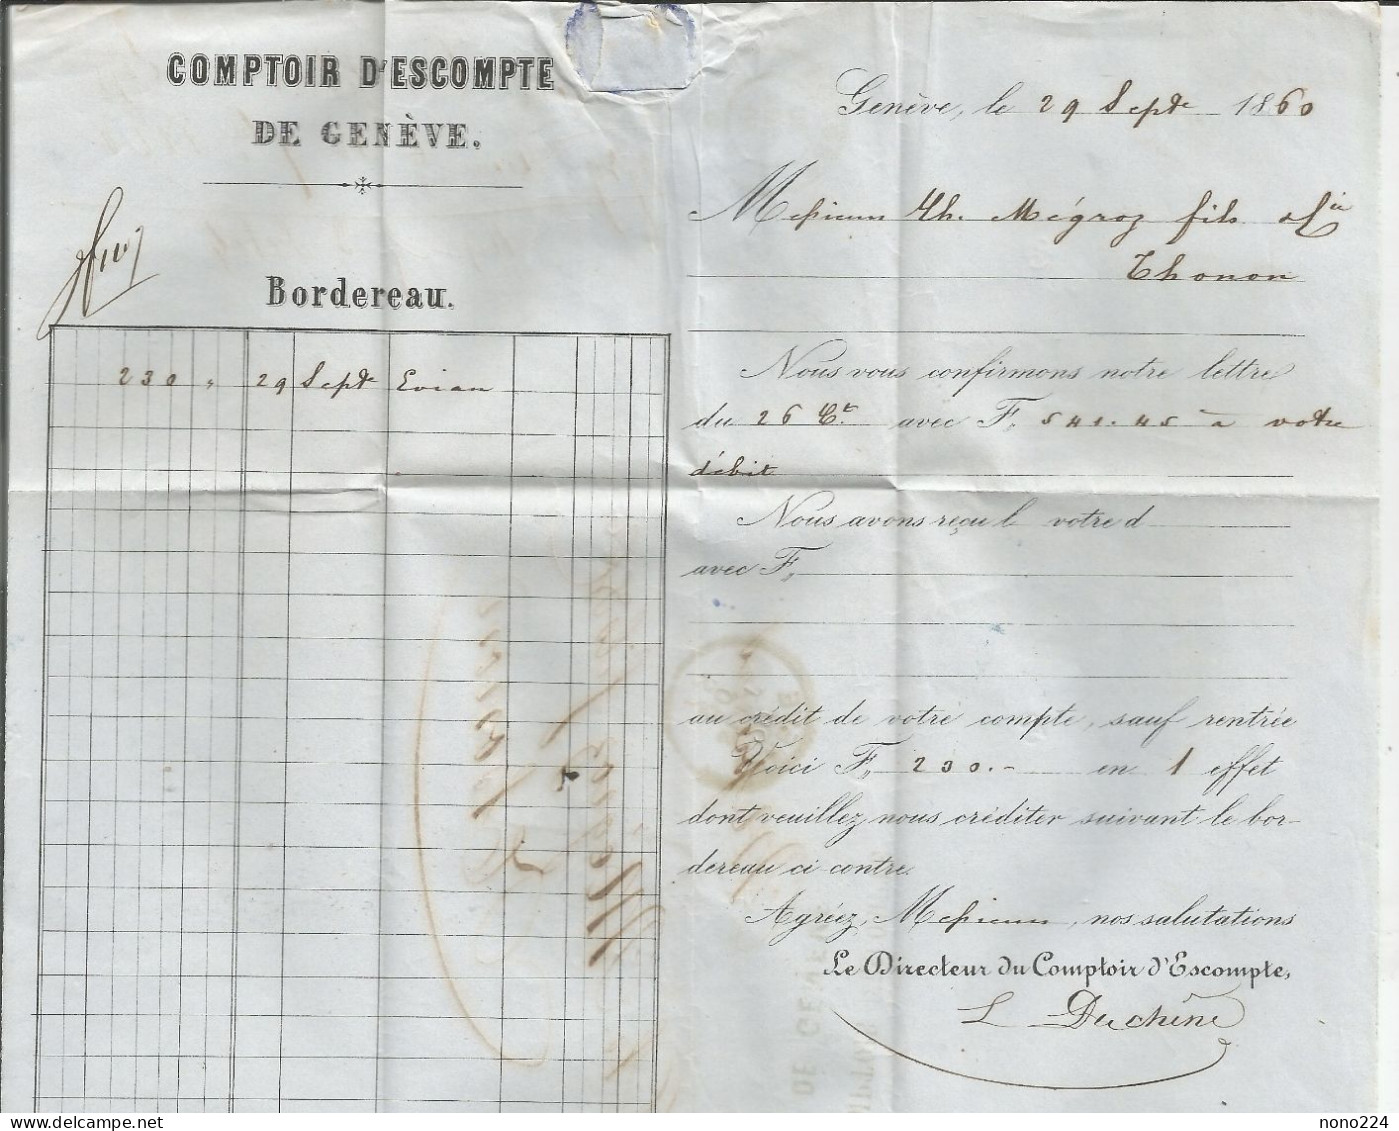 COMPTOIR D'ESCOMPTE
DE GENÈVE.
Bordereau.
230 " 29 Septe Evian
Genève, le 29 Septe 1860
Messieurs Mégroz fils & Cie
Thonon
Nous vous confirmons notre lettre
du 26 Ct. avec F. 541.45 à votre
débit
Nous avons reçu l votre d
avec F.
au crédit de votre compte, sauf rentrée
Voici F. 230.- en 1 effet
dont veuillez nous créditer suivant le bor-
dereau ci contre.
Agréez, Messieurs, nos salutations
Le Directeur du Comptoir d'Escompte,
L Duchêne
nono224